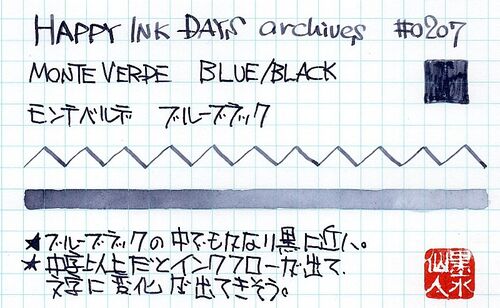 HAPPY INK DAYS archives #0207
MONTEVERDE BLUE/BLACK
モンテベルデ ブルーブラック
★ブルーブラックの中でもかなり黒に近い。
★中字以上だとインクフローが出て、
文字に変化が出てきそう。
墨水
仙人